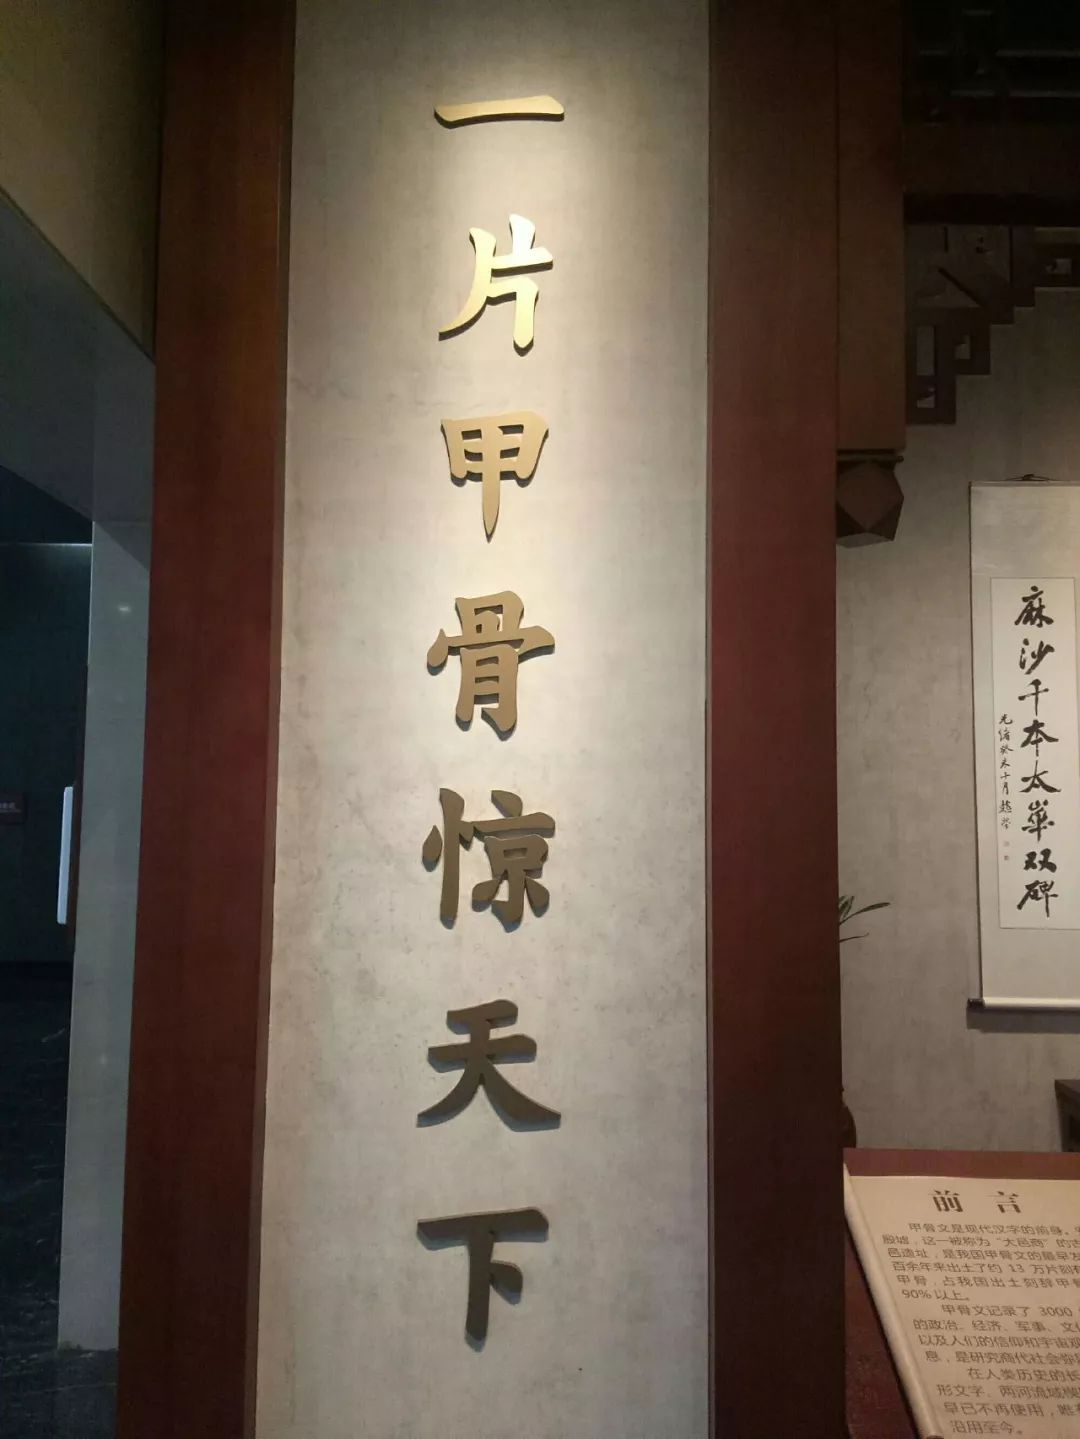 一片甲骨惊天下
麻沙千本太华双碑
光绪癸未十月
前言
甲骨文是现代汉字的前身。
殷墟，这一被称为“大邑商”的古
邑遗址，是我国甲骨文的最早发
百余年来出土了约 13 万片刻有
甲骨，占我国出土刻辞甲骨
90%以上。
甲骨文记录了 3000
的政治、经济、军事、文化
以及人们的信仰和宇宙观
息，是研究商代社会弥
在人类历史的长
形文字、两河流域楔
早已不再使用，唯有
沿用至今。